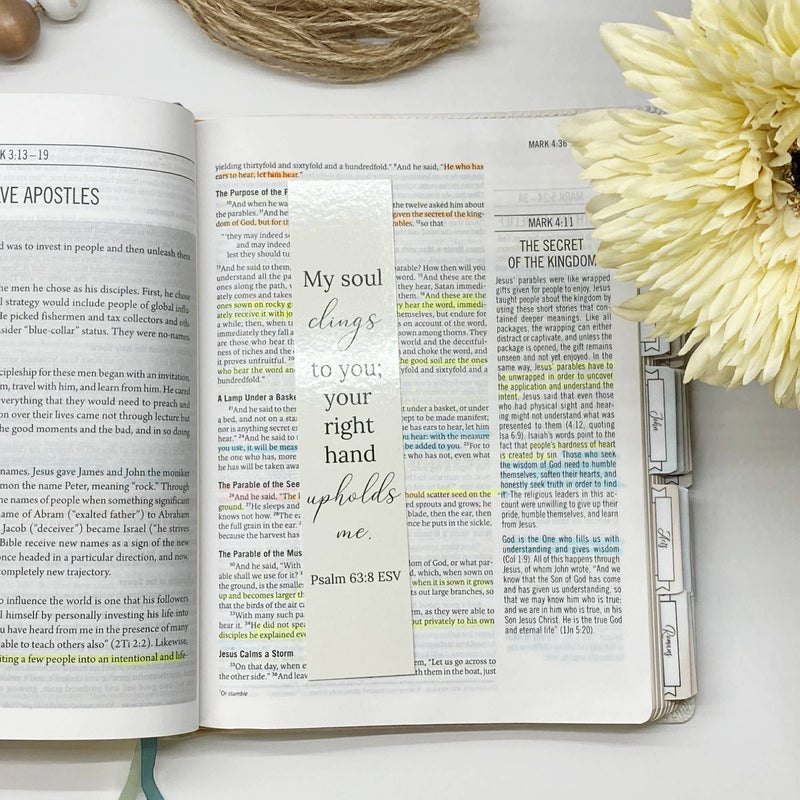 K 3:13–19
VE APOSTLES
d was to invest in people and then unleash them
he men he chose as his disciples. First, he chose
l strategy would include people of global influ
He picked fishermen and tax collectors and oth-
sider “blue-collar” status. They were no-names.
cipleship for these men began with an invitation.
m, travel with him, and learn from him. He cared
everything that they would need to preach and
on over their lives came not through lecture but
he good moments and the bad, and in so doing
names. Jesus gave James and John the moniker
mon the name Peter, meaning “rock.” Through
he names of people when something significant
me of Abram (“exalted father”) to Abraham
Jacob (“deceiver”) became Israel (“he strives
Bible receive new names as a sign of the new
once headed in a particular direction, and now,
ompletely new trajectory.
o influence the world is one that his followers
l himself by personally investing his life into
u have heard from me in the presence of many
able to teach others also” (2Ti 2:2). Likewise,
iting a few people into an intentional and life-
MARK 4:36
yielding thirtyfold and sixtyfold and a hundredfold.” 9And he said, “He who has
ears to hear, let him hear.”
The Purpose of the P
10And when he wa
the twelve asked him about
the parables. 11And he s
given the secret of the king-
dom of God, but for th
ables, 12so that
“‘they may indeed s
and may indeed
lest they should tu
13And he said to them,
arable? How then will you
understand all the pa
word. 15And these are the
ones along the path, w
they hear, Satan immedi-
ately comes and takes
16And these are the
ones sown on rocky g
y hear the word, immedi-
ately receive it with jo
themselves, but endure for
a while; then, when t
on account of the word,
immediately they fall a
own among thorns. They
are those who hear th
world and the deceitful-
ness of riches and the
and choke the word, and
it proves unfruitful. 20
the good soil are the ones
who hear the word an
tyfold and sixtyfold and a
hundredfold.”
A Lamp Under a Baske
21And he said to the
under a basket, or under
a bed, and not on a stan
ept to be made manifest;
nor is anything secret ex
has ears to hear, let him
hear.” 24And he said to
u hear: with the measure
you use, it will be measu
be added to you. 25For to
the one who has, more
who has not, even what
he has will be taken awa
The Parable of the See
26And he said, “The k
hould scatter seed on the
ground. 27He sleeps an
sprouts and grows; he
knows not how. 28The ea
blade, then the ear, then
the full grain in the ear.
nce he puts in the sickle,
because the harvest has
The Parable of the Mus
30And he said, “With
dom of God, or what par-
able shall we use for it?
d, which, when sown on
the ground, is the smalles
when it is sown it grows
up and becomes larger th
ts out large branches, so
that the birds of the air ca
33With many such par
m, as they were able to
hear it. 34He did not spea
but privately to his own
disciples he explained eve
Jesus Calms a Storm
35On that day, when e
m, “Let us go across to
the other side.” 36And leav
th them in the boat, just
1Or stumble
My soul
clings
to you;
your
right
hand
upholds
me.
Psalm 63:8 ESV
MARK 4:11
THE SECRET
OF THE KINGDOM
Jesus’ parables were like wrapped
gifts given for people to enjoy. Jesus
taught people about the kingdom by
using these short stories that con-
tained deeper meanings. Like all
packages, the wrapping can either
distract or captivate, and unless the
package is opened, the gift remains
unseen and not yet enjoyed. In the
same way, Jesus’ parables have to
be unwrapped in order to uncover
the application and understand the
intent. Jesus said that even those
who had physical sight and hear-
ing might not understand what was
presented to them (4:12, quoting
Isa 6:9). Isaiah’s words point to the
fact that people’s hardness of heart
is created by sin. Those who seek
the wisdom of God need to humble
themselves, soften their hearts, and
honestly seek truth in order to find
it. The religious leaders in this ac-
count were unwilling to give up their
pride, humble themselves, and learn
from Jesus.
God is the One who fills us with
understanding and gives wisdom
(Col 1:9). All of this happens through
Jesus, of whom John wrote, “And we
know that the Son of God has come
and has given us understanding, so
that we may know him who is true;
and we are in him who is true, in his
Son Jesus Christ. He is the true God
and eternal life” (1Jn 5:20).
John
Acts
Romans